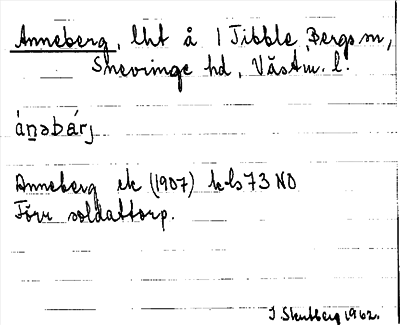 Anneberg, lht å 1 Tibble, Bergs sn,
Snevringe hd, Västm. l.
ánəbárj
Anneberg ek (1907) kbl 73 NO
Förr soldattorp.
J Skutberg 1962.